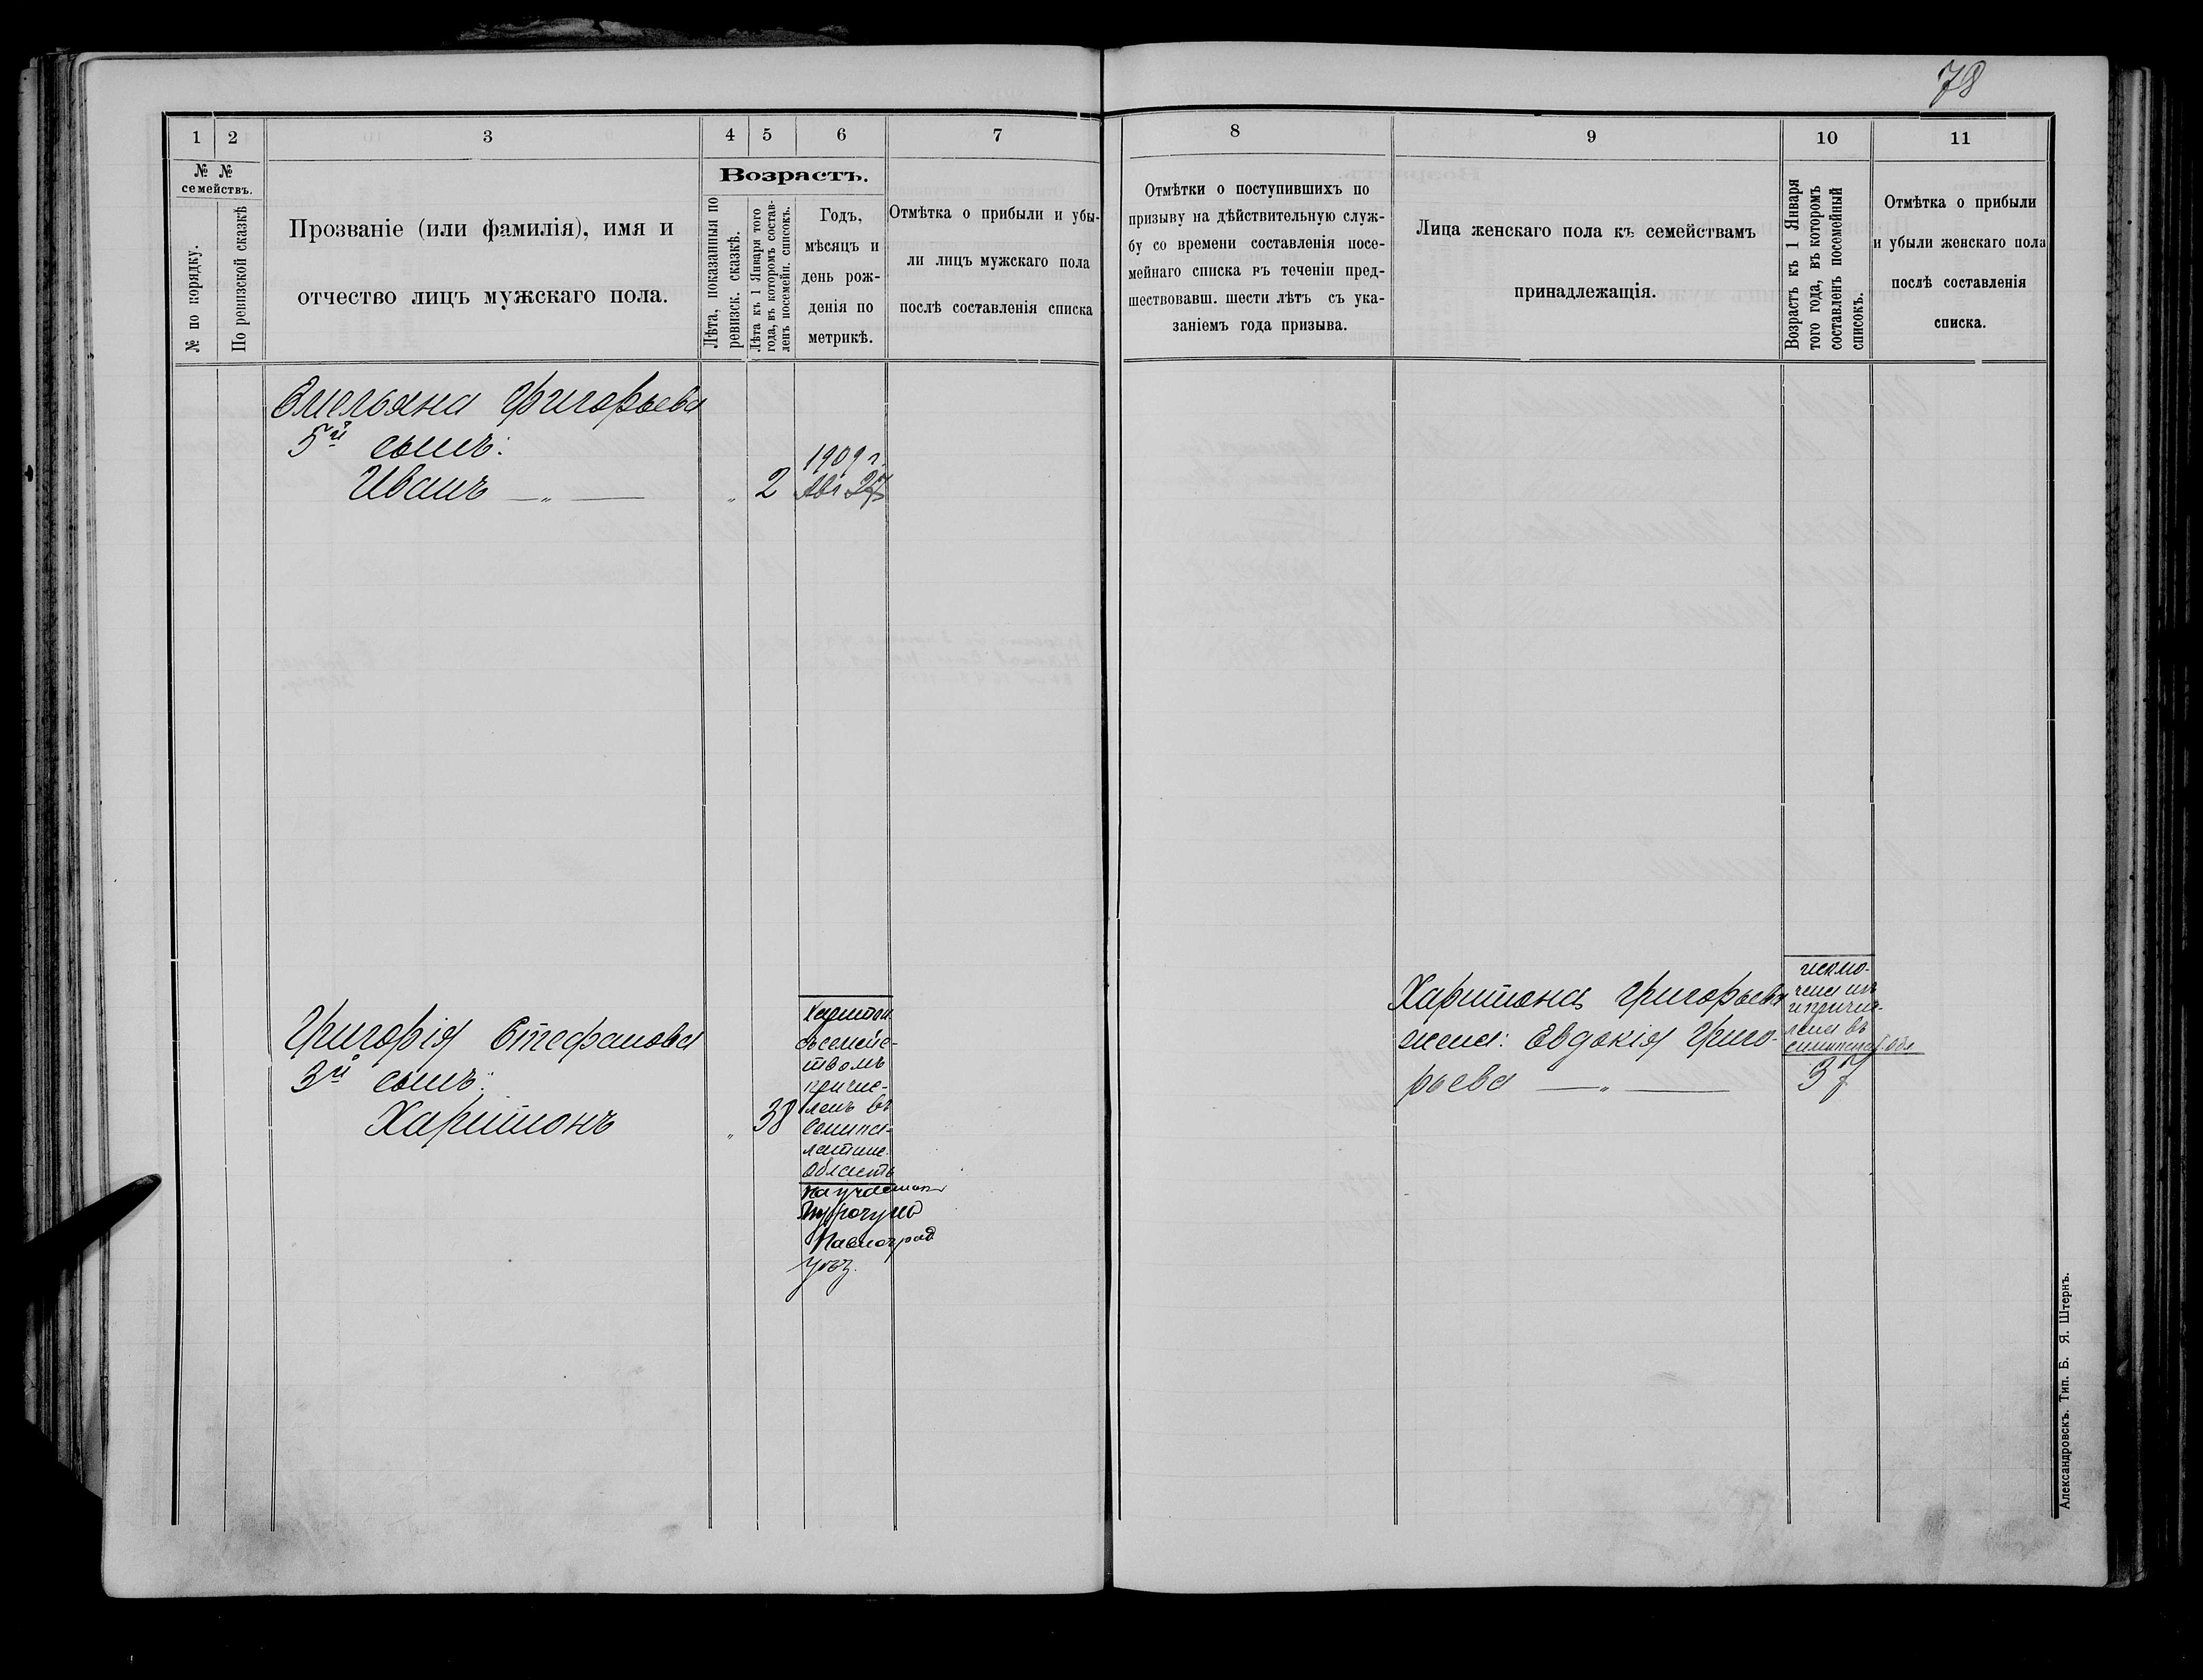 78
1
2
3
4
5
6
7
№ №
семействъ.
№ по порядку.
По ревизской сказкѣ
Прозваніе (или фамилія), имя и
отчество лицъ мужскаго пола.
Возрастъ.
Лѣта, показанныя по
ревизск. сказкѣ.
Лѣта къ 1 Января того
года, въ которомъ состав-
ленъ посемейн. списокъ.
Годъ,
мѣсяцъ и
день рож-
денія по
метрикѣ.
Отмѣтка о прибыли и убы-
ли лицъ мужскаго пола
послѣ составленія списка
Емельяна Григорьева
5й сынъ:
Иванъ — „ —
„
2
1909 г.
Авг 27
Григорія Стефанова
3й сынъ:
Харитонъ
„
38
Харитон
съ семей-
ствомъ
причис-
ленъ въ
Семипа-
латинс.
область
на участокъ
Павлоград
уѣз.
8
9
10
11
Отмѣтки о поступившихъ по
призыву на дѣйствительную служ-
бу со времени составленія посе-
мейнаго списка въ теченіи пред-
шествовавш. шести лѣтъ съ ука-
заніемъ года призыва.
Лица женскаго пола къ семействамъ
принадлежащія.
Возрастъ къ 1 Января
того года, въ которомъ
составленъ посемейный
списокъ.
Отмѣтка о прибыли
и убыли женскаго пола
послѣ составленія
списка.
Харитона Григорьева
жена: Евдокія Григо-
рьева — „ —
исклю-
чена изъ
и причис-
лена въ
семипалат. обл
37
Александровскъ. Тип. Б. Я. Штернъ.